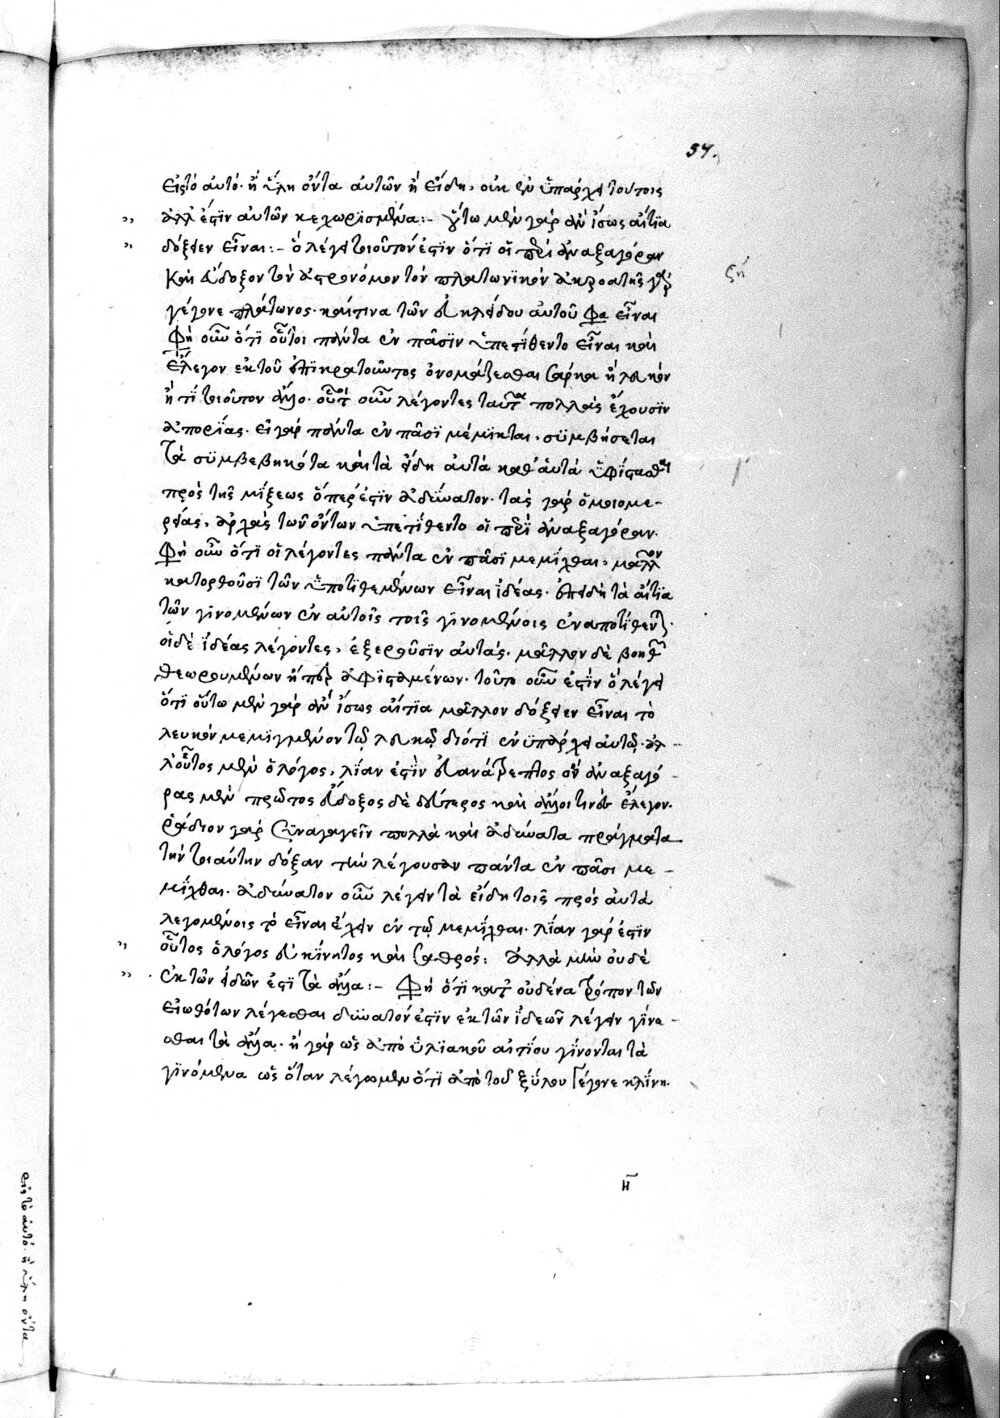 57.
εἰς τὸ αὐτό· ἢ ὕλη ὄντα αὐτῶν ἢ εἴδη, οὐκ ἐνυπάρχει τούτοις
ἀλλ' ἐστὶν αὐτῶν κεχωρισμένα:- οὕτω μὲν γὰρ ἂν ἴσως αἴτια
δόξειεν εἶναι:- ὃ λέγει τοιοῦτόν ἐστιν ὅτι οἱ περὶ ἀναξαγόραν
καὶ εὔδοξον τὸν ἀστρονόμον τὸν πλατωνικὸν ἀκροατὴς γὰρ
γέγονε πλάτωνος· καί τινα τῶν
εἶναι
φησὶ οὖν ὅτι οὗτοι πάντα ἐν πᾶσιν ὑπετίθεντο εἶναι καὶ
ἔλεγον ἐκ τοῦ ἐπικρατοῦντος ὀνομάζεσθαι σάρκα ἢ λευκὸν
ἤ τι τοιοῦτον ἄλλο· οὗτοι οὖν λέγοντες ταῦτα πολλὰς ἔχουσιν
ἀπορίας· εἰ γὰρ πάντα ἐν πᾶσι μέμικται, συμβήσεται
τὰ συμβεβηκότα καὶ τὰ εἴδη αὐτὰ καθ' αὑτὰ ὑφίστασθαι
πρὸς τῆς μίξεως ὅπερ ἐστὶν ἀδύνατον· τὰς γὰρ ὁμοιομε-
ρείας, ἀρχὰς τῶν ὄντων ὑπετίθεντο οἱ περὶ ἀναξαγόραν.
φησὶ οὖν ὅτι οἱ λέγοντες πάντα ἐν πᾶσι μεμίχθαι, μᾶλλον
κατορθοῦσι τῶν ὑποτιθεμένων εἶναι ἰδέας· ἐπειδὴ τὰ αἴτια
τῶν γινομένων ἐν αὐτοῖς τοῖς γινομένοις ἐναποτίθενται·
οἱ δὲ ἰδέας λέγοντες, ἐξαιροῦσιν αὐτάς· μᾶλλον δὲ
θεωρουμένων ἤπερ ἀφισταμένων· τοῦτο οὖν ἐστὶν ὃ λέγει
ὅτι οὕτω μὲν γὰρ ἂν ἴσως αἴτια μᾶλλον δόξειεν εἶναι τὸ
λευκὸν μεμιγμένον τῷ λευκῷ διότι ἐνυπάρχει αὐτῷ· ἀλ-
λ' οὗτος μὲν ὁ λόγος, λίαν ἐστὶν εὐανάτρεπτος ὃν ἀναξαγό-
ρας μὲν πρῶτος εὔδοξος δὲ δεύτερος καὶ ἄλλοι τινὲς ἔλεγον.
ῥάδιον γὰρ συναγαγεῖν πολλὰ καὶ ἀδύνατα πράγματα
τὴν τοιαύτην δόξαν τὴν λέγουσαν πάντα ἐν πᾶσι με-
μίχθαι· ἀδύνατον οὖν λέγειν τὰ εἴδη τοῖς πρὸς αὐτὰ
λεγομένοις τὸ εἶναι ἔχειν ἐν τῷ μεμίχθαι· λίαν γάρ ἐστιν
οὗτος ὁ λόγος εὐκίνητος καὶ σαθρός: ἀλλὰ μὴν οὐδὲ
ἐκ τῶν εἰδῶν ἐστὶ τὰ ἄλλα:- φησὶ ὅτι κατ' οὐδένα τρόπον τῶν
εἰωθότων λέγεσθαι δυνατόν ἐστιν ἐκ τῶν ἰδεῶν λέγειν γίνε-
σθαι τὰ ἄλλα· ἢ γὰρ ὡς ἀπὸ ὑλικοῦ αἰτίου γίνονται τὰ
γινόμενα ὡς ὅταν λέγωμεν ὅτι ἀπὸ τοῦ ξύλου γέγονε κλίνη.
ἢ
εἰς τὸ αὐτό· ἢ ὕλη ὄντα